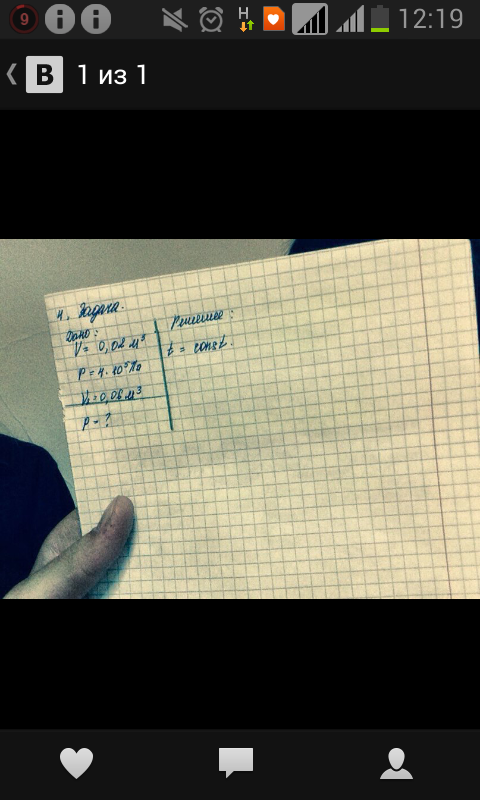 9
H
12:19
B 1 из 1
4. Задача.
Дано:
V = 0,02 м³
P = 4·10⁵ Па
V₁ = 0,06 м³
P - ?
Решение:
t = const.